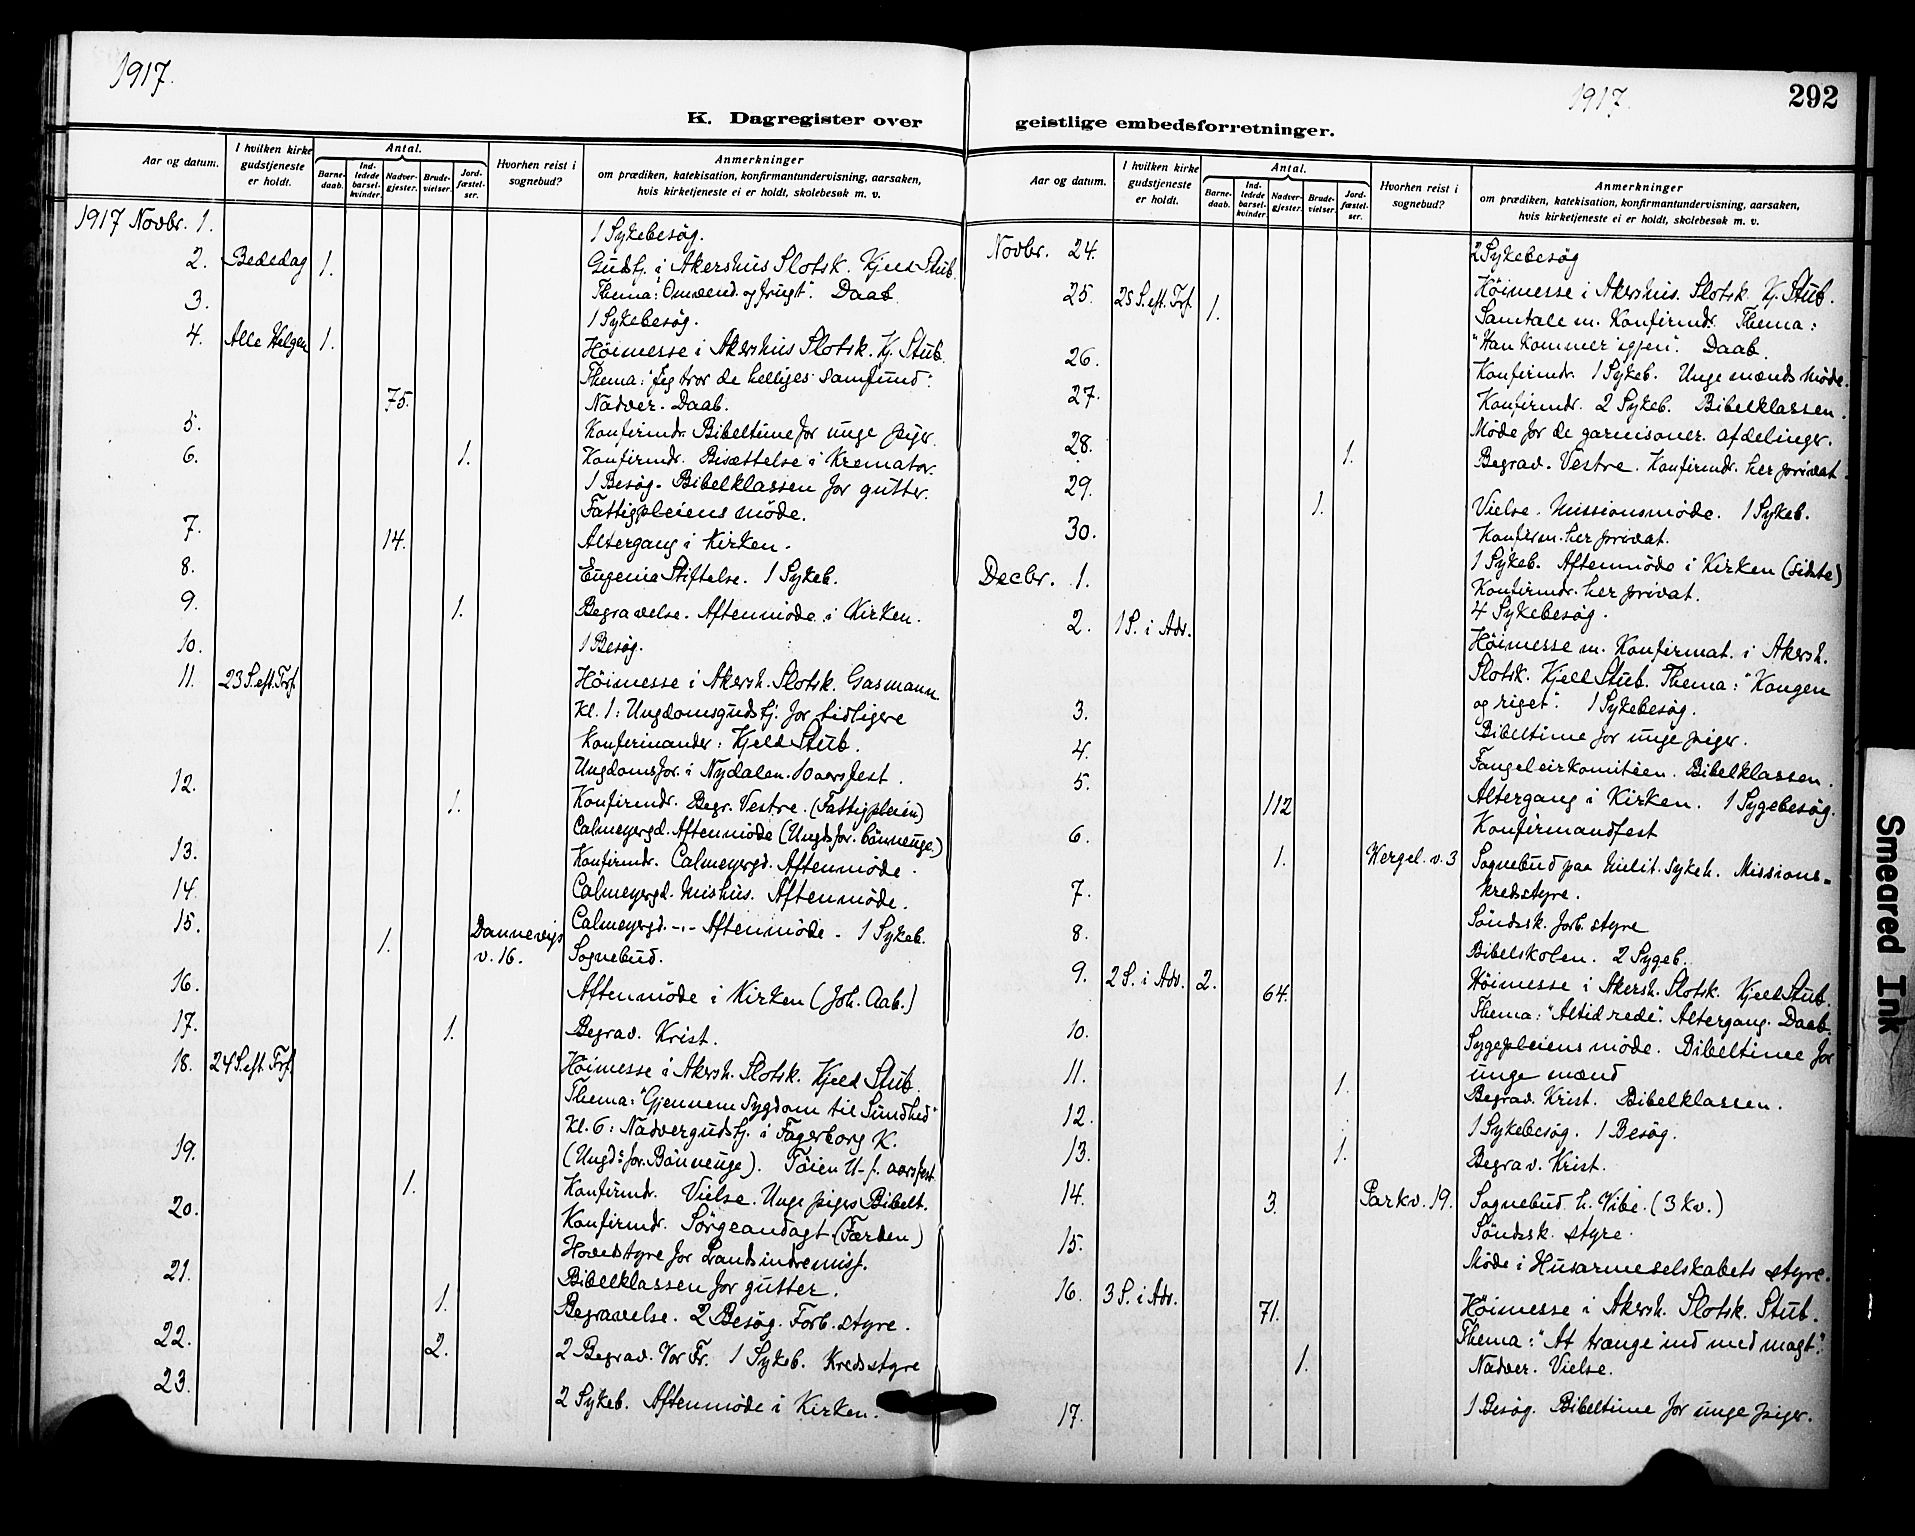 1917.
K. Dagregister over
Aar og datum.
I hvilken kirke gudstjeneste er holdt.
Antal.
Barne-daab.
Ind-ledede barsel-kvinder.
Nadver-gjester.
Brude-vielser.
Jord-fæstel-ser.
Hvorhen reist i sognebud?
Anmerkninger
om prædiken, katekisation, konfirmantundervisning, aarsaken,
hvis kirketjeneste ei er holdt, skolebesøk m. v.
1917 Novbr. 1. 1 Sykebesøg.
2. Bededag 1. Gudstj. i Akershus Slotsk. Kjeld Stub
Thema: "Omvend. og frugt". Daab.
3. 1 Sykebesøg.
4. Alle Helgen 1. Höimesse i Akershus Slotsk. Kj. Stub.
Thema: "Jeg tror de helliges samfund".
75. Nadver. Daab.
5. Konfirmdr. Bibeltime for unge piger.
6. 1. Konfirmdr. Bisættelse i Kremator.
1 Besøg. Bibelklassen for gutter.
Fattigpleiens møde.
7. 14. Altergang i Kirken.
8. Eugenia Stiftelse. 1 Sykeb.
9. 1. Begravelse. Aftenmöde i Kirken.
10. 1 Besøg.
11. 23 S. eft. Trf. Höimesse i Akersh. Slotsk. Gasmann
Kl. 1: Ungdomsgudstj. for tidligere
Konfirmander: Kjeld Stub.
Ungdomsfor. i Nydalen. 10 aarsfest.
12. 1. Konfirmdr. Begr. Vestre. (Fattigpleien)
Calmeyergd. Aftenmöde (Ungdsfor. bönneuge.)
13. Konfirmdr. Calmeyergd. Aftenmöde.
14. Calmeyergd. Mishus. Aftenmöde.
15. Calmeyergd. -"- Aftenmöde - 1 Sykeb.
1. Dannevigs v. 16. Sognebud.
16. Aftenmöde i Kirken (Joh. Aab.)
17. 1. Begrav. Krist.
18. 24 S. eft. Trf. Höimesse i Akersh. Slotsk. Kjeld Stub.
Thema: "Gjennem Sygdom til Sundhed"
Kl. 6: Nadvergudstj. i Fagerborg K.
(Ungd: for. Bönneuge). Töien U-f. aarsfest
19. 1. Konfirmdr. Vielse. Unge pigers Bibelt.
20. Konfirmdr. Sörgeandagt (Færden)
Hovedstyre for Landsindremisj.
Bibelklassen for gutter.
21. 1. Begravelse. 2 Besøg. Forb. styre.
22. 2. 2 Begrav. Vor Fr. 1 Sykeb. Kredsstyre
23. 2 Sykeb. Aftenmöde i Kirken.
1917.
292
geistlige embedsforretninger.
Aar og datum.
I hvilken kirke gudstjeneste er holdt.
Antal.
Barne-daab.
Ind-ledede barsel-kvinder.
Nadver-gjester.
Brude-vielser.
Jord-fæstel-ser.
Hvorhen reist i sognebud?
Anmerkninger
om prædiken, katekisation, konfirmantundervisning, aarsaken,
hvis kirketjeneste ei er holdt, skolebesøk m. v.
Novbr. 24. 2 Sykebesøg
25. 25 S. eft. Trf. 1. Höimesse i Akershus. Slotsk. Kj. Stub.
Samtale m. Konfirmdr. Thema:
"Han kommer igjen". Daab.
26. Konfirmdr. 1 Sykeb. Unge mænds Möde.
27. Konfirmdr. 2 Sykeb. Bibelklassen.
Möde for de garnisoner. afdelinger.
28. 1. Begrav. Vestre. Konfirmdr. her privat.
29. 1. Vielse. Missionsmöde. 1 Sykeb.
30. Konfirm. her privat.
1 Sykeb. Aftenmöde i Kirken (sidste)
Decbr. 1. Konfirmdr. her privat.
4 Sykebesøg.
2. 1 S. i Adv. Höimesse m. Konfirmat. i Akersh.
Slotsk. Kjeld Stub. Thema: "Kongen
og riget". 1 Sykebesøg.
3. Bibeltime for unge piger.
4. Fangeleirkomitéen. Bibelklassen.
5. 112 Altergang i Kirken. 1 Sygebesøg.
Konfirmandfest
6. 1. Wergel. v. 3 Sognebud paa Milit. Sykeh. Missions-
kredsstyre.
7. Söndsk. forb. styre
8. Bibelskolen. 2 Sygeb.
9. 2 S. i Adv. 2. 64. Höimesse i Akersh. Slotsk. Kjeld Stub.
Thema: "Altid rede". Altergang. Daab.
10. Sygepleiens möde. Bibeltime for
unge mænd
11. 1. Begrav. Krist. Bibelklassen.
12. 1 Sykebesøg. 1 Besøg.
13. 1. Begrav. Krist.
14. 3. Parkv. 19. Sognebud h. Vibe. (3 kv.)
Söndsk. styre.
15. Möde i Husarmeselskabets styre.
16. 3 S. i Adv. 71. Höimesse i Akersh. Slotsk. Stub.
Thema: "At trænge ind med magt".
1. Nadver. Vielse.
17. 1 Besøg. Bibeltime for unge piger.
Smeared Ink